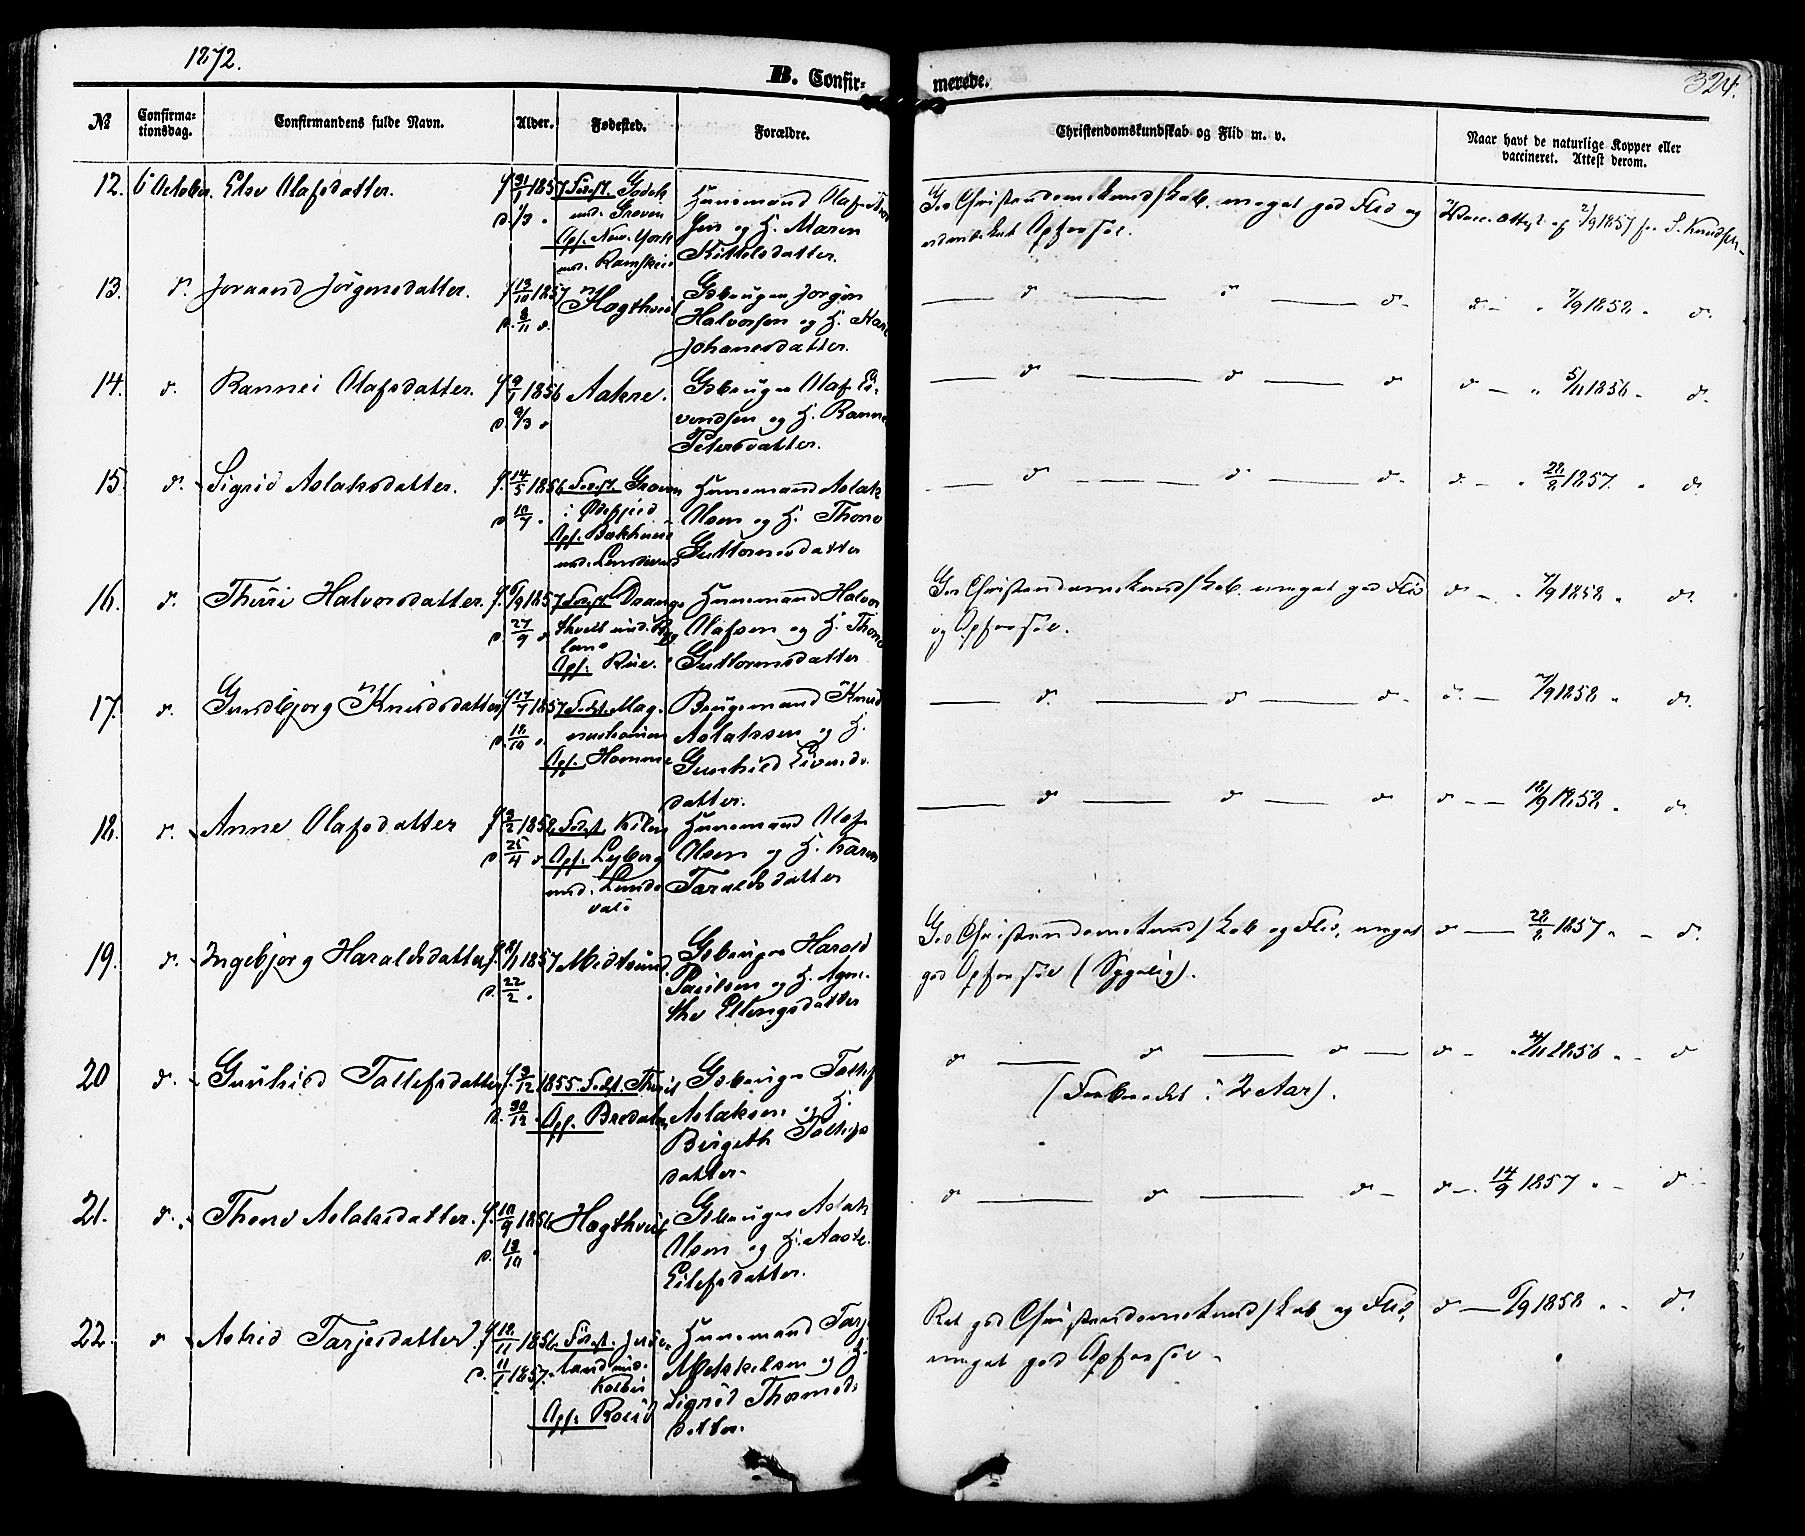 1872.
B. Confir-
merede.
324.
№
Confirma-
tionsdag.
Confirmandens fulde Navn.
Alder.
Fødested.
Forældre.
Christendomskundskab og Flid m. v.
Naar havt de naturlige Kopper eller
vaccineret. Attest derom.
12. 6 October. Else Olafsdatter. f 31/1 1857
d. 1/3 "
Husmand Olaf
og H. Maren
Kittelsdatter.
God Christendomskundskab, meget god Flid og
Opførsel.
Vacc. Attest af 2/9 1857 fra S. Knudsen
13. d. Joraand Jørgensdatter. f 13/10 1857
d. 8/11 d.
Høgthveit
Gbruger Jørgen
Halvorsen og H. Kari
Johanesdatter.
d d d. d. — " 7/9 1858 " d.
14. d. Rannei Olafsdatter. f 9/1 1856
d. 9/3 d
Aakre.
Gbruger Olaf Ei-
vendsen og H. Ranne
Petersdatter.
d d d d — " 5/11 1856 " d.
15. d. Sigrid Aslaksdatter. f. 14/5 1856
d 10/7 "
Fødest. Groven
Opf.
Husmand Aslak
Olsen og H. Thone
Guttormsdatter
d d d. d. — " 28/8 1857. " d.
16. d. Thori Halvorsdatter. f. 6/9 1857
d. 27/9 d
Fødest. Drange-
Opf. Rue.
Husmand Halvor
Olafsen og H. Thone
Guttormsdatter
God Christendomskundskab, meget god Flid
og Opførsel.
d — " 7/9 1858 " d.
17. d. Gundbjørg Knudsdatter f 17/7 1857
d. 18/10 d
Fødst. Mag-
Opf. Homme
Brugsmand Knud
Aslaksen og H.
Gunhild Eivinds-
datter.
d. d d. d. — 7/9 1858 " d.
18. d. Anne Olafsdatter f 3/2 1858
d. 25/4 d
Fødst. Kilen
Opf. Lyberg
und. Lunde-
val
Husmand Olaf
Olsen og H. Karen
Taraldsdatter
d d d d — 18/9 1858 " d.
19. d. Ingebjørg Haraldsdatter f. 8/1 1857
d. 22/2 "
Midtsund.
Gbruger Harald
Paulsen og H. Agne-
the Ellingsdatter
God Christendomskundskab og Flid, meget
god Opførsel (Sygelig).
d — 28/8 1857 " d.
20 d. Gunhild Tollefsdatter f. 3/12 1855.
d. 30/12
Fødst. Thveit
Opf. Bredalen
Gbruger Tollef
Aslaksen og H.
Birgith Tollefs
datter.
d d d — d — 2/11 1856 " d
(Forberedet i 2 Aar).
21. d. Thone Aslaksdatter. f. 10/9 1856
d. 19/10
Høgthveit
Gbruger Aslak
Olsen og H. Aaste
Eilefsdatter.
d d d — d — 14/9 1857 " d
22. d Astrid Tarjesdatter f 18/11 1856
d. 11/1 1857.
Fødst.
land und.
Opf. Roeid
Husmand Tarje
Metskelsen og H.
Sigrid Thormods-
datter.
Ret god Christendomskundskab og Flid,
meget god Opførsel.
d — 6/9 1858 " d.